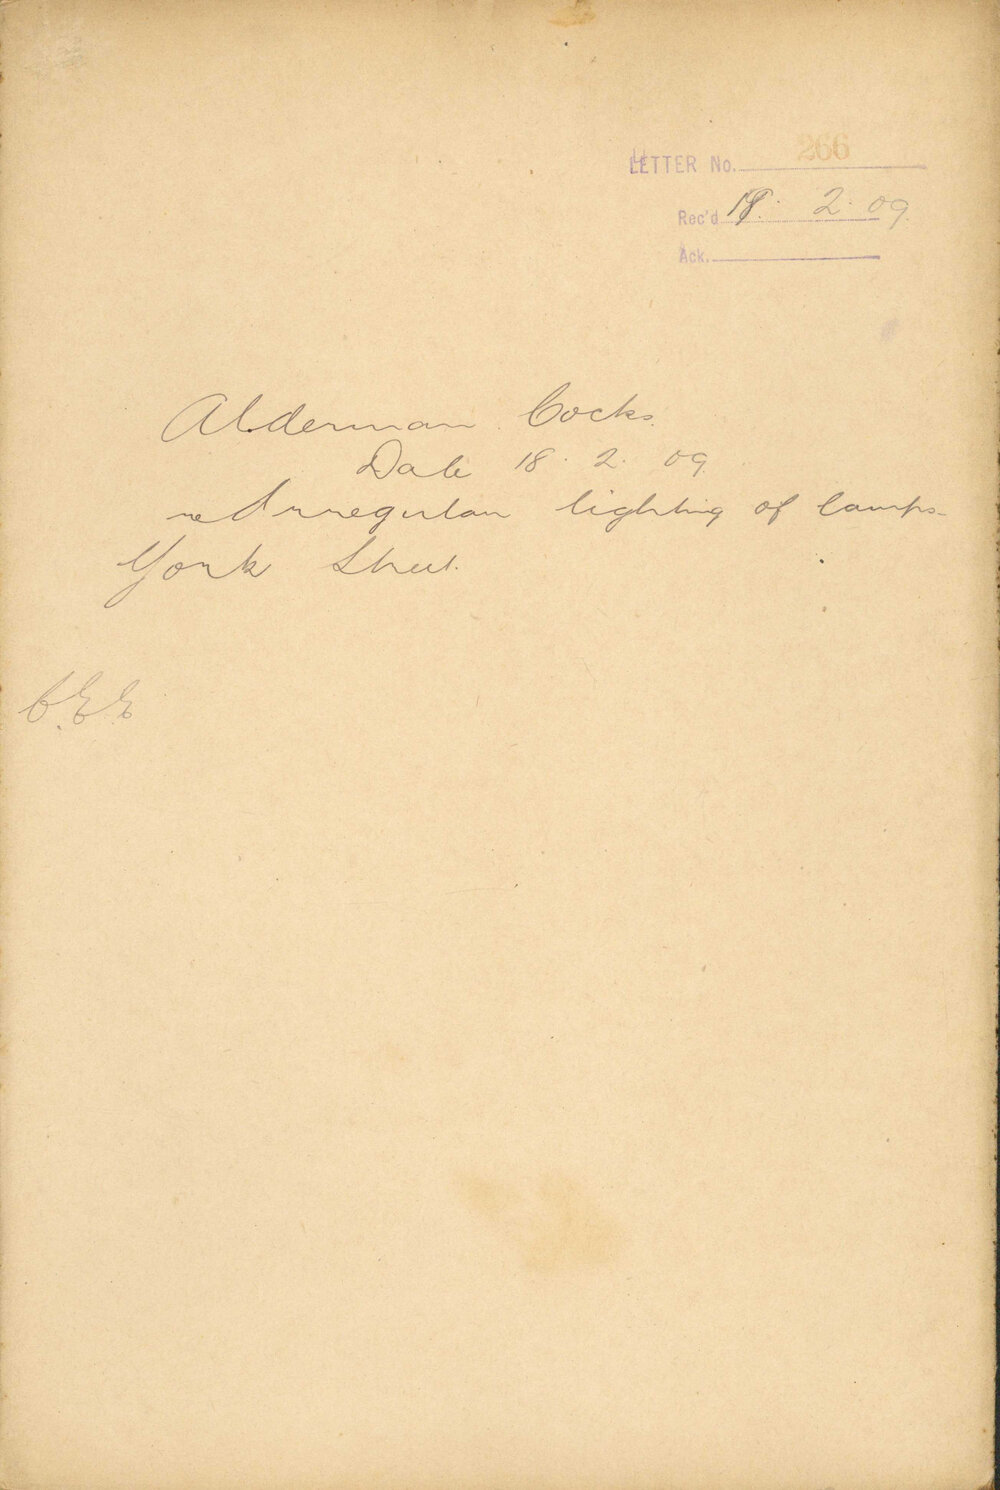 LETTER No. 266
Rec'd 18. 2. 09.
Ack.
Alderman Cocks.
Date 18. 2. 09.
re Irregular lighting of lamps
York Street.
C.E.E